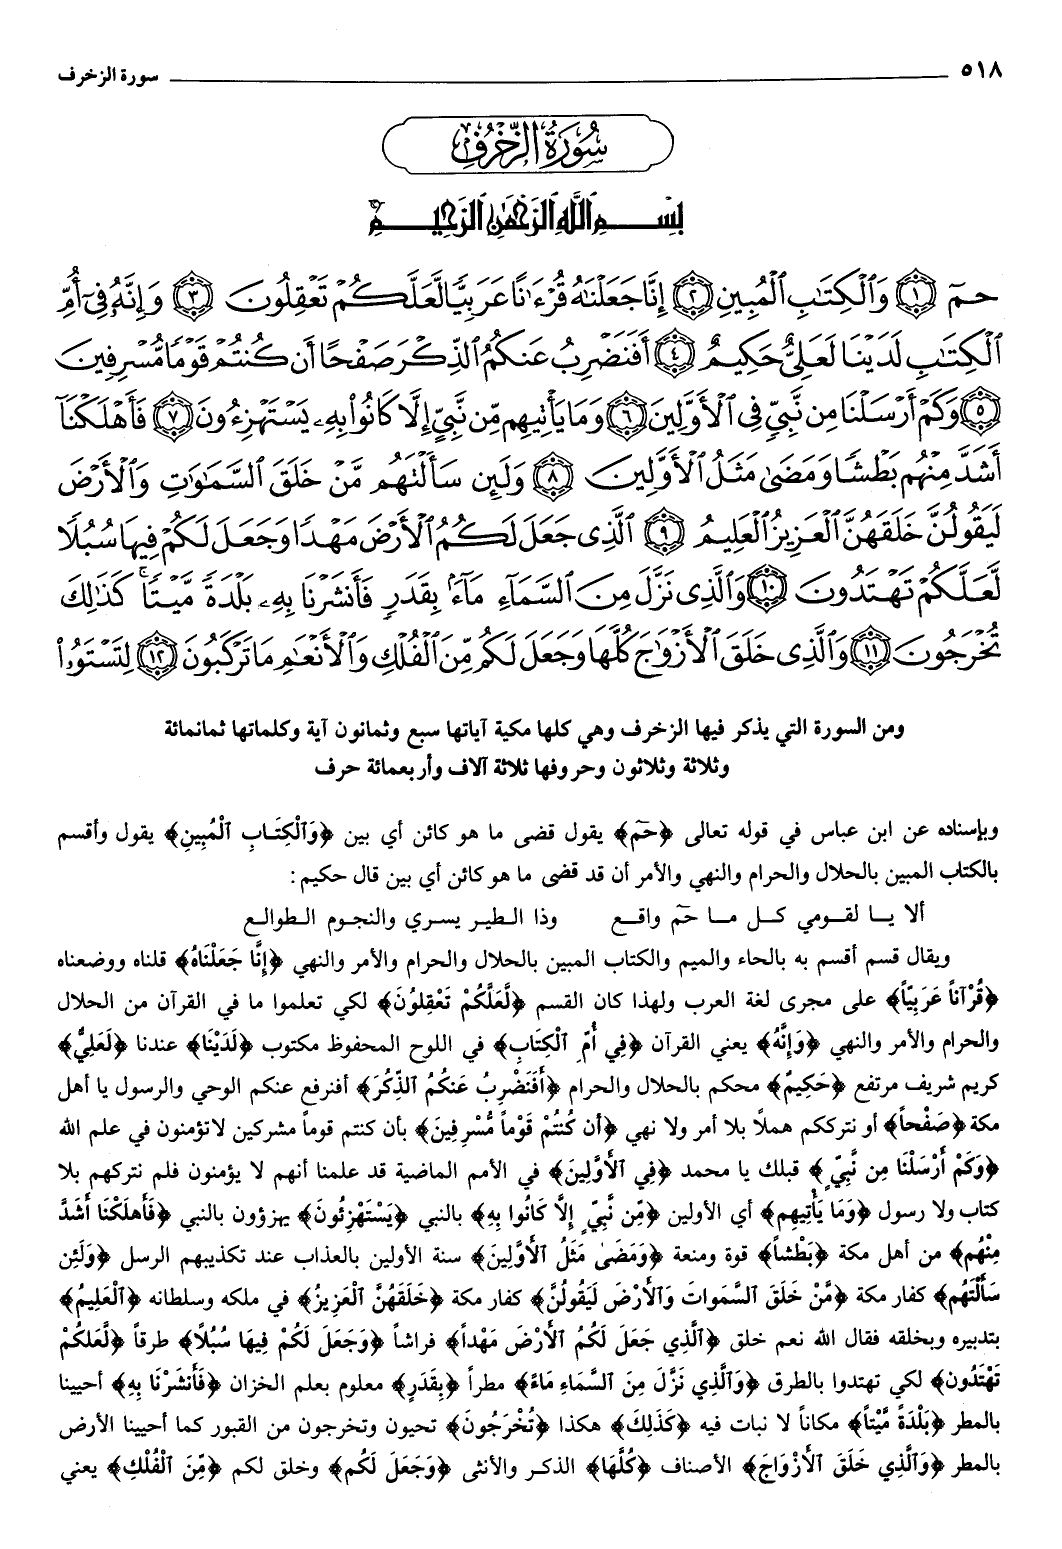 ٥١٨ سورة الزخرف
سُورَةُ الزُّخْرُفِ
بِسْمِ ٱللَّهِ ٱلرَّحْمَٰنِ ٱلرَّحِيمِ
حمٓ ١ وَٱلْكِتَٰبِ ٱلْمُبِينِ ٢ إِنَّا جَعَلْنَٰهُ قُرْءَٰنًا عَرَبِيًّا لَّعَلَّكُمْ تَعْقِلُونَ ٣ وَإِنَّهُۥ فِىٓ أُمِّ
ٱلْكِتَٰبِ لَدَيْنَا لَعَلِىٌّ حَكِيمٌ ٤ أَفَنَضْرِبُ عَنكُمُ ٱلذِّكْرَ صَفْحًا أَن كُنتُمْ قَوْمًا مُّسْرِفِينَ
٥ وَكَمْ أَرْسَلْنَا مِن نَّبِىٍّ فِى ٱلْأَوَّلِينَ ٦ وَمَا يَأْتِيهِم مِّن نَّبِىٍّ إِلَّا كَانُوا۟ بِهِۦ يَسْتَهْزِءُونَ ٧ فَأَهْلَكْنَآ
أَشَدَّ مِنْهُم بَطْشًا وَمَضَىٰ مَثَلُ ٱلْأَوَّلِينَ ٨ وَلَئِن سَأَلْتَهُم مَّنْ خَلَقَ ٱلسَّمَٰوَٰتِ وَٱلْأَرْضَ
لَيَقُولُنَّ خَلَقَهُنَّ ٱلْعَزِيزُ ٱلْعَلِيمُ ٩ ٱلَّذِى جَعَلَ لَكُمُ ٱلْأَرْضَ مَهْدًا وَجَعَلَ لَكُمْ فِيهَا سُبُلًا
لَّعَلَّكُمْ تَهْتَدُونَ ١٠ وَٱلَّذِى نَزَّلَ مِنَ ٱلسَّمَآءِ مَآءًۢ بِقَدَرٍ فَأَنشَرْنَا بِهِۦ بَلْدَةً مَّيْتًا ۚ كَذَٰلِكَ
تُخْرَجُونَ ١١ وَٱلَّذِى خَلَقَ ٱلْأَزْوَٰجَ كُلَّهَا وَجَعَلَ لَكُم مِّنَ ٱلْفُلْكِ وَٱلْأَنْعَٰمِ مَا تَرْكَبُونَ ١٢ لِتَسْتَوُۥا۟
ومن السورة التي يذكر فيها الزخرف وهي كلها مكية آياتها سبع وثمانون آية وكلماتها ثمانمائة
وثلاثة وثلاثون وحروفها ثلاثة آلاف وأربعمائة حرف
وبإسناده عن ابن عباس في قوله تعالى ﴿حَمٓ﴾ يقول قضى ما هو كائن أي بين ﴿وَٱلْكِتَـابِ ٱلْمُبِينِ﴾ يقول وأقسم
بالكتاب المبين بالحلال والحرام والنهي والأمر أن قد قضى ما هو كائن أي بين قال حكيم :
ألا يــا لقــومي كــل مــا حَمَ واقــع وذا الـطيـر يسـري والنجـوم الـطوالـع
ويقال قسم أقسم به بالحاء والميم والكتاب المبين بالحلال والحرام والأمر والنهي ﴿إِنَّا جَعَلْنَاهُ﴾ قلناه ووضعناه
﴿قُرْآناً عَرَبِيّاً﴾ على مجرى لغة العرب ولهذا كان القسم ﴿لَّعَلَّكُمْ تَعْقِلُونَ﴾ لكي تعلموا ما في القرآن من الحلال
والحرام والأمر والنهي ﴿وَإِنَّهُ﴾ يعني القرآن ﴿فِي أُمِّ ٱلْكِتَابِ﴾ في اللوح المحفوظ مكتوب ﴿لَدَيْنَا﴾ عندنا ﴿لَعَلِيٌّ﴾
كريم شريف مرتفع ﴿حَكِيمٌ﴾ محكم بالحلال والحرام ﴿أَفَنَضْرِبُ عَنكُمُ ٱلذِّكْرَ﴾ أفنرفع عنكم الوحي والرسول يا أهل
مكة ﴿صَفْحاً﴾ أو نترككم هملاً بلا أمر ولا نهي ﴿أَن كُنتُمْ قَوْماً مُّسْرِفِينَ﴾ بأن كنتم قوماً مشركين لاتؤمنون في علم الله
﴿وَكَمْ أَرْسَلْنَا مِن نَّبِيٍّ﴾ قبلك يا محمد ﴿فِي ٱلْأَوَّلِينَ﴾ في الأمم الماضية قد علمنا أنهم لا يؤمنون فلم نتركهم بلا
كتاب ولا رسول ﴿وَمَا يَأْتِيهِم﴾ أي الأولين ﴿مِّن نَّبِيٍّ إِلَّا كَانُوا بِهِ﴾ بالنبي ﴿يَسْتَهْزِئُونَ﴾ يهزؤون بالنبي ﴿فَأَهلَكْنَا أَشَدَّ
مِنْهُم﴾ من أهل مكة ﴿بَطْشاً﴾ قوة ومنعة ﴿وَمَضَىٰ مَثَلُ ٱلأَوَّلِينَ﴾ سنة الأولين بالعذاب عند تكذيبهم الرسل ﴿وَلَئِن
سَأَلْتَهُم﴾ كفار مكة ﴿مَّنْ خَلَقَ ٱلسَّمَوَات وَٱلْأَرْضَ لَيَقُولُنَّ﴾ كفار مكة ﴿خَلَقَهُنَّ ٱلْعَزِيزُ﴾ في ملكه وسلطانه ﴿ٱلْعَلِيمُ﴾
بتدبيره وبخلقه فقال الله نعم خلق ﴿ٱلَّذِي جَعَلَ لَكُمُ ٱلْأَرْضَ مَهْداً﴾ فراشاً ﴿وَجَعَلَ لَكُمْ فِيهَا سُبُلًا﴾ طرقاً ﴿لَّعَلكُمْ
تَهْتَدُون﴾ لكي تهتدوا بالطرق ﴿وَٱلَّذِي نَزَّلَ مِنَ ٱلسَّمَاءِ مَاءً﴾ مطراً ﴿بِقَدَرٍ﴾ معلوم بعلم الخزان ﴿فَأَنشَرْنَا بِهِ﴾ أحيينا
بالمطر ﴿بَلْدَةً مَّيْتاً﴾ مكاناً لا نبات فيه ﴿كَذَلِكَ﴾ هكذا ﴿تُخْرَجُونَ﴾ تحيون وتخرجون من القبور كما أحيينا الأرض
بالمطر ﴿وَٱلَّذِي خَلَقَ ٱلْأَزْوَاجَ﴾ الأصناف ﴿كُلَّهَا﴾ الذكر والأنثى ﴿وَجَعَلَ لَكُم﴾ وخلق لكم ﴿مِّنَ ٱلْفُلْكِ﴾ يعني